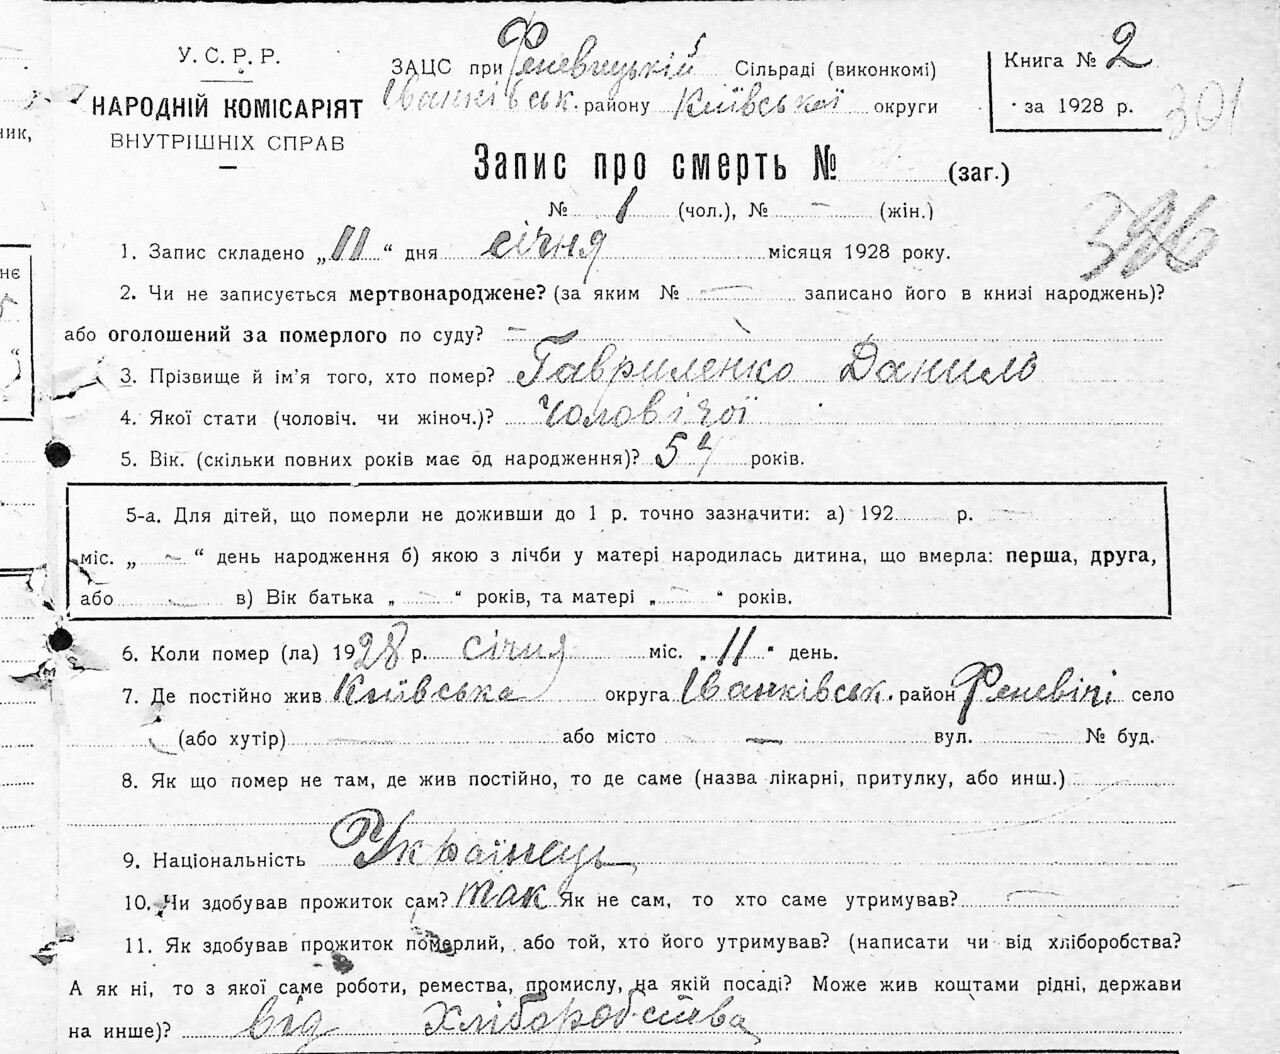 У. С. Р. Р.
НАРОДНІЙ КОМІСАРІЯТ
ВНУТРІШНІХ СПРАВ
ЗАЦС при Феневицькій Сільраді (виконкомі)
Іванківськ. району Київської округи
Книга № 2
за 1928 р.
301
Запис про смерть № (заг.)
№ 1 (чол.), № – (жін.)
1. Запис складено „11“ дня січня місяця 1928 року.
2. Чи не записується мертвонароджене? (за яким № — записано його в книзі народжень)?
або оголошений за померлого по суду? —
3. Прізвище й ім’я того, хто помер? Гавриленко Даниль
4. Якої стати (чоловіч. чи жіноч.)? чоловічої
5. Вік. (скільки повних років має од народження)? 57 років.
5-а. Для дітей, що померли не доживши до 1 р. точно зазначити: а) 192 р. —
міс. „ — “ день народження б) якою з лічби у матері народилась дитина, що вмерла: перша, друга,
або — в) Вік батька „ — “ років, та матері „ — “ років.
6. Коли помер (ла) 1928 р. січня міс. „11“ день.
7. Де постійно жив Київська округа Іванківськ. район Феневічі село
(або хутір) — або місто — вул. — № буд.
8. Як що помер не там, де жив постійно, то де саме (назва лікарні, притулку, або инш.)
9. Національність Українець
10. Чи здобував прожиток сам? так Як не сам, то хто саме утримував? —
11. Як здобував прожиток померлий, або той, хто його утримував? (написати чи від хліборобства?
А як ні, то з якої саме роботи, ремества, промислу, на якій посаді? Може жив коштами рідні, держави
на инше)? від хліборобства